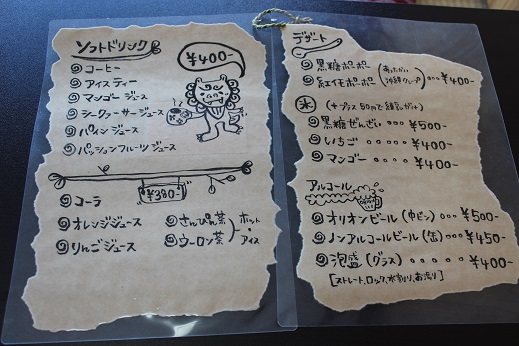 ソフトドリンク
¥400-
コーヒー
アイスティー
マンゴージュース
シークヮーサージュース
パインジュース
パッションフルーツジュース
¥380-
コーラ
オレンジジュース
りんごジュース
さんぴん茶
ウーロン茶
ホット・アイス
デザート
黒糖ポーポー
紅イモポーポー
¥400-
氷 (+プラス50円で練乳がけ)
黒糖ぜんざい ¥500-
いちご ・・・・・ ¥400-
マンゴー ・・・・ ¥400-
アルコール
オリオンビール(中ビン) ・・・ ¥500-
ノンアルコールビール(缶) ・・ ¥450-
泡盛(グラス) ・・・・・ ¥400-
[ストレート、ロック、水割り、お湯割り]